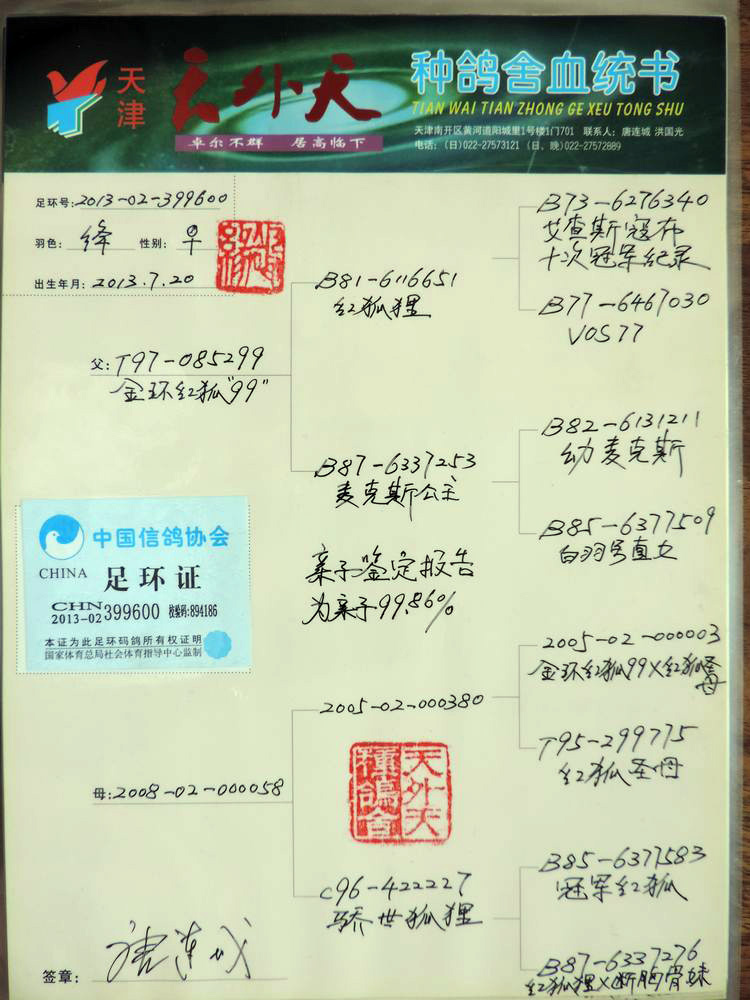 天津
天外天
卓尔不群 居高临下
种鸽舍血统书
TIAN WAI TIAN ZHONG GE XEU TONG SHU
天津南开区黄河道阳城里1号楼1门701 联系人：唐连城 洪国光
电话：(日)022-27573121 (日、晚)022-27572889
足环号：2013-02-399600
羽色：绛 性别：♀
出生年月：2013.7.20
父：T97-085299
金环红狐"99"
B81-6116651
红狐狸
B73-6276340
艾查斯寇布
十次冠军纪录
B77-6467030
VOS77
B87-6337253
麦克斯公主
B82-6131211
幼麦克斯
B85-6377509
白羽号直女
亲子鉴定报告
为亲子99.86%
中国信鸽协会
CHINA 足环证
CHN
2013-02 399600 校验码:894186
本证为此足环码鸽所有权证明
国家体育总局社会体育指导中心监制
母：2008-02-000058
2005-02-000380
2005-02-000003
金环红狐99×红狐圣母
T95-299775
红狐圣母
天外天
种鸽舍
C96-422227
骄世狐狸
B85-6377583
冠军红狐
B87-6337276
红狐狸×断胸骨妹
签章：唐连城